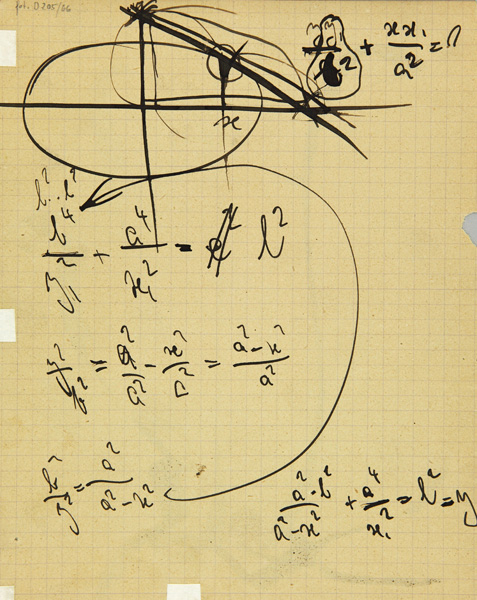 fot. D 205/66
yy₁/b² + xx₁/a² = 1
x
b²..b²
b⁴/y₁² + a⁴/x₁² = l²
y²/b² = a²/a² - x²/a² = (a² - x²)/a²
b²/y² = a²/(a² - x²)
(a²·b²)/(a² - x²) + a⁴/x₁² = l² = y